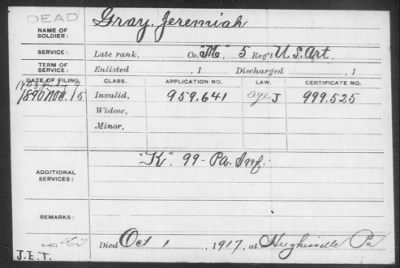 DEAD
NAME OF SOLDIER: Gray, Jeremiah
SERVICE: Late rank, Co. "M" 5 Reg't U.S. Art.
TERM OF SERVICE: Enlisted , 1 Discharged , 1
DATE OF FILING. CLASS. APPLICATION NO. LAW. CERTIFICATE NO.
1890 Nov. 15 Invalid, 959.641 J 999.525
Widow,
Minor,
ADDITIONAL SERVICES: "K" 99 - Pa. Inf.
REMARKS:
Died Oct 1, 1917, at Hughesville Pa
J.E.T.